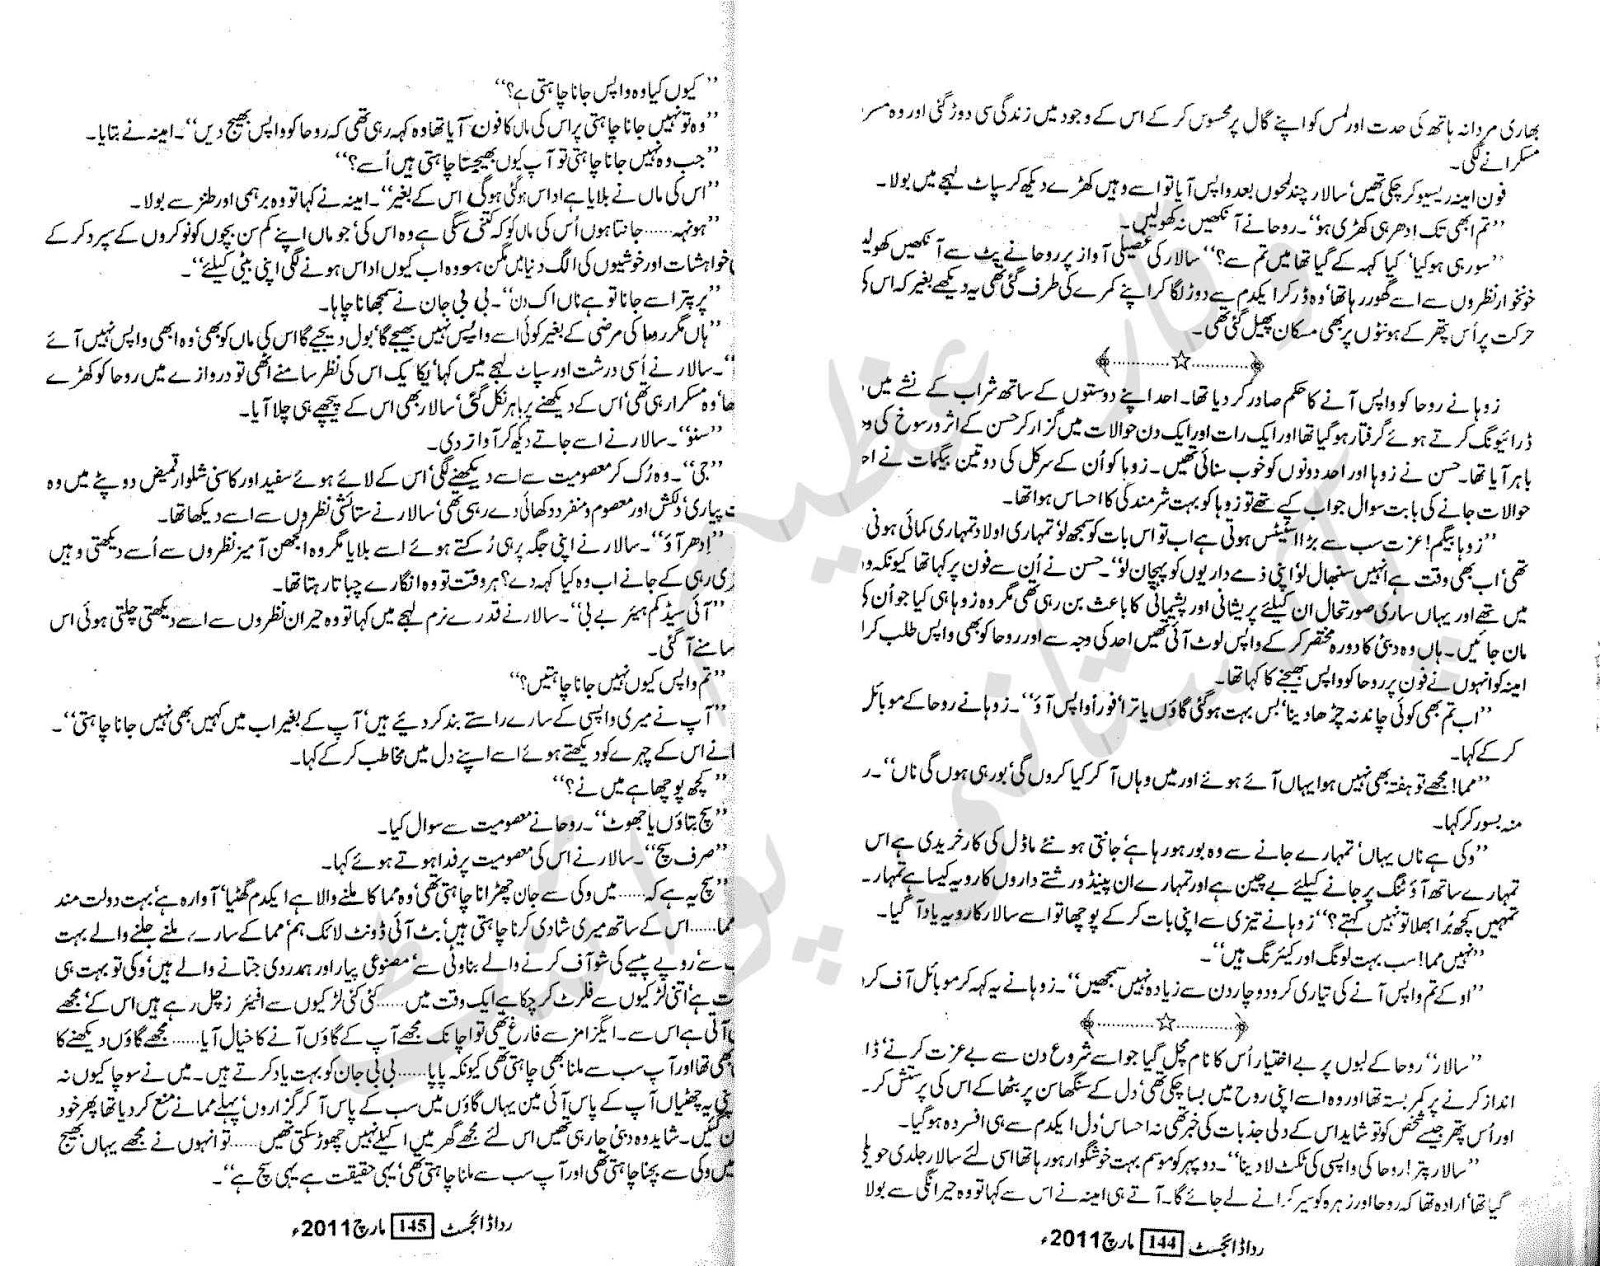 بھاری مردانہ ہاتھ کی حدت اور لمس کو اپنے گال پر محسوس کر کے اس کے وجود میں زندگی سی دوڑ گئی اور وہ مسر
مسکرانے لگی۔
فون امینہ ریسیو کر چکی تھیں‘ سالار چند لمحوں بعد واپس آیا تو اسے وہیں کھڑے دیکھ کر سپاٹ لہجے میں بولا۔
’’تم ابھی تک ادھر ہی کھڑی ہو‘‘۔ روحا نے آنکھیں نہ کھولیں۔
’’سو رہی ہو کیا‘ کیا کہہ کے گیا تھا میں تم سے؟‘‘ سالار کی غصیلی آواز پر روحا نے پٹ سے آنکھیں کھولیں
خونخوار نظروں سے اسے گھور رہا تھا‘ وہ ڈر کر ایکدم سے دوڑ لگا کر اپنے کمرے کی طرف گئی تھی یہ دیکھے بغیر کہ اس کی
حرکت پر اُس پتھر کے ہونٹوں پر بھی مسکان پھیل گئی تھی۔
زوہا نے روحا کو واپس آنے کا حکم صادر کر دیا تھا۔ احد اپنے دوستوں کے ساتھ شراب کے نشے میں
ڈرائیونگ کرتے ہوئے گرفتار ہو گیا تھا اور ایک رات اور ایک دن حوالات میں گزار کر حسن کے اثر و رسوخ کی وہ
باہر آیا تھا۔ حسن نے زوہا اور احد دونوں کو خوب سنائی تھیں۔ زوہا کو اُن کے سرکل کی دو تین بیگمات نے اح
حوالات جانے کی بابت سوال جواب کیے تھے تو زوہا کو بہت شرمندگی کا احساس ہوا تھا۔
’’زوہا بیگم! عزت سب سے بڑا اسٹیٹس ہوتی ہے اب تو اس بات کو سمجھ لو‘ تمہاری اولاد تمہاری کمائی ہوئی
تھی‘ اب بھی وقت ہے انہیں سنبھال لو‘ اپنی ذمے داریوں کو پہچان لو‘‘۔ حسن نے اُن سے فون پر کہا تھا کیونکہ وہ
میں تھے اور یہاں ساری صورتحال ان کیلئے پریشانی اور پشیمانی کا باعث بن رہی تھی مگر وہ زوہا ہی کیا جو اُن کی
مان جائیں۔ ہاں وہ دبئی کا دورہ مختصر کر کے واپس لوٹ آئی تھیں احد کی وجہ سے اور روحا کو بھی واپس طلب کرا
امینہ کو انہوں نے فون پر روحا کو واپس بھیجنے کا کہا تھا۔
’’اب تم بھی کوئی چاند نہ چڑھا دینا‘ بس بہت ہو گئی گاؤں یاترا‘ فوراً واپس آؤ‘‘۔ زوہا نے روحا کے موبائل
کر کے کہا۔
’’مما! مجھے تو ہفتہ بھی نہیں ہوا یہاں آئے ہوئے اور میں وہاں آ کر کیا کروں گی‘ بور ہی ہوں گی ناں‘‘۔ ر
منہ بسور کر کہا۔
’’وکی ہے ناں یہاں‘ تمہارے جانے سے وہ بور ہو رہا ہے‘ جانتی ہو نئے ماڈل کی کار خریدی ہے اس
تمہارے ساتھ آؤٹنگ پر جانے کیلئے بے چین ہے اور تمہارے ان پینڈو رشتے داروں کا رویہ کیسا ہے تمہار
تمہیں کچھ بُرا بھلا تو نہیں کہتے؟‘‘ زوہا نے تیزی سے اپنی بات کر کے پوچھا تو اسے سالار کا رویہ یاد آ گیا۔
’’نہیں مما! سب بہت لونگ اور کیئرنگ ہیں‘‘۔
’’او کے تم واپس آنے کی تیاری کرو دو چار دن سے زیادہ نہیں سمجھیں‘‘۔ زوہا نے یہ کہہ کر موبائل آف کر د
’’سالار‘‘ روحا کے لبوں پر بے اختیار اُس کا نام مچل گیا جو اسے شروع دن سے بے عزت کرنے‘ ڈا
انداز کرنے پر کمر بستہ تھا اور وہ اسے اپنی روح میں بسا چکی تھی‘ دل کے سنگھاسن پر بٹھا کے اس کی پرستش کر
اور اُس پتھر جیسے شخص کو تو شاید اس کے دلی جذبات کی خبر تھی نہ احساس‘ دل ایکدم سے ہی افسردہ ہو گیا۔
’’سالار پتر! روحا کی واپسی کی ٹکٹ لا دینا‘‘۔ دوپہر کو موسم بہت خوشگوار ہو رہا تھا اسی لئے سالار جلدی حویلی
گیا تھا‘ ارادہ تھا کہ روحا اور زہرہ کو سیر کرانے لے جائے گا۔ آتے ہی امینہ نے اس سے کہا تو وہ حیرانگی سے بولا
ردا ڈائجسٹ 144 مارچ 2011ء
’’کیوں کیا وہ واپس جانا چاہتی ہے؟‘‘
’’وہ تو نہیں جانا چاہتی پر اس کی ماں کا فون آیا تھا وہ کہہ رہی تھی کہ روحا کو واپس بھیج دیں‘‘۔ امینہ نے بتایا۔
’’جب وہ نہیں جانا چاہتی تو آپ کیوں بھیجنا چاہتی ہیں اُسے؟‘‘
’’اس کی ماں نے بلایا ہے اداس ہو گئی ہو گی اس کے بغیر‘‘۔ امینہ نے کہا تو وہ برہمی اور طنز سے بولا۔
’’ہونہہ...... جانتا ہوں اُس کی ماں کو کہ کتنی سگی ہے وہ اس کی‘ جو ماں اپنے کم سن بچوں کو نوکروں کے سپرد کر کے
خواہشات اور خوشیوں کی الگ دنیا میں مگن ہو وہ اب کیوں اداس ہونے لگی اپنی بیٹی کیلئے‘‘۔
’’پر پتر اسے جانا تو ہے ناں اک دن‘‘۔ بی بی جان نے سمجھانا چاہا۔
’’ہاں مگر روحا کی مرضی کے بغیر کوئی اسے واپس نہیں بھیجے گا‘ بول دیجیے گا اس کی ماں کو بھی‘ وہ ابھی واپس نہیں آئے
‘‘۔ سالار نے اُسی درشت اور سپاٹ لہجے میں کہا‘ یکایک اس کی نظر سامنے اٹھی تو دروازے میں روحا کو کھڑے
ھا‘ وہ مسکرا رہی تھی‘ اس کے دیکھنے پر باہر نکل گئی‘ سالار بھی اس کے پیچھے ہی چلا آیا۔
’’سنو‘‘۔ سالار نے اسے جاتے دیکھ کر آواز دی۔
’’جی‘‘۔ وہ رُک کر معصومیت سے اسے دیکھنے لگی‘ اس کے لائے ہوئے سفید اور کاسنی شلوار قمیض دوپٹے میں وہ
ت پیاری‘ دلکش اور معصوم و منفرد دکھائی دے رہی تھی‘ سالار نے ستائشی نظروں سے اسے دیکھا تھا۔
’’اِدھر آؤ‘‘۔ سالار نے اپنی جگہ پر ہی رُکتے ہوئے اسے بلایا مگر وہ الجھن آمیز نظروں سے اُسے دیکھتی وہیں
ڑی رہی کے جانے اب وہ کیا کہہ دے؟ ہر وقت تو وہ انگارے چباتا رہتا تھا۔
’’آئی سیڈ کم ہیئر بے بی‘‘۔ سالار نے قدرے نرم لہجے میں کہا تو وہ حیران نظروں سے اسے دیکھتی چلتی ہوئی اس
سامنے آ گئی۔
’’تم واپس کیوں نہیں جانا چاہتیں؟‘‘
’’آپ نے میری واپسی کے سارے راستے بند کر دیئے ہیں‘ آپ کے بغیر اب میں کہیں بھی نہیں جانا چاہتی‘‘۔
ا نے اس کے چہرے کو دیکھتے ہوئے اسے اپنے دل میں مخاطب کر کے کہا۔
’’کچھ پوچھا ہے میں نے؟‘‘
’’سچ بتاؤں یا جھوٹ‘‘۔ روحا نے معصومیت سے سوال کیا۔
’’صرف سچ‘‘۔ سالار نے اس کی معصومیت پر فدا ہوتے ہوئے کہا۔
’’سچ یہ ہے کہ...... میں وکی سے جان چھڑانا چاہتی تھی‘ وہ مما کا ملنے والا ہے‘ ایکدم گھٹیا‘ آوارہ ہے‘ بہت دولت مند
مما...... اس کے ساتھ میری شادی کرنا چاہتی ہیں‘ بٹ آئی ڈونٹ لائک ہم‘ مما کے سارے ملنے جلنے والے بہت
سے‘ روپے پیسے کی شو آف کرنے والے بناوٹی سے‘ مصنوعی پیار اور ہمدردی جتانے والے ہیں‘ وکی تو بہت ہی
ت ہے‘ اتنی لڑکیوں سے فلرٹ کر چکا ہے ایک وقت میں...... کئی کئی لڑکیوں سے افیئرز چل رہے ہیں اس کے‘ مجھے
آتی ہے اس سے۔ ایگزامز سے فارغ تھی تو اچانک مجھے آپ کے گاؤں آنے کا خیال آیا...... مجھے گاؤں دیکھنے کا
بھی تھا اور آپ سب سے ملنا بھی چاہتی تھی کیونکہ پاپا...... بی بی جان کو بہت یاد کرتے ہیں۔ میں نے سوچا کیوں نہ
یہ چھٹیاں آپ کے پاس آئی مین یہاں گاؤں میں سب کے پاس آ کر گزاروں‘ پہلے مما نے منع کر دیا تھا پھر خود
ن گئیں۔ شاید وہ دبئی جا رہی تھیں اس لئے مجھے گھر میں اکیلے نہیں چھوڑ سکتی تھیں...... تو انہوں نے مجھے یہاں بھیج
میں وکی سے بچنا چاہتی تھی اور آپ سب سے ملنا چاہتی تھی‘ یہی حقیقت ہے یہی سچ ہے‘‘۔
ردا ڈائجسٹ 145 مارچ 2011ء